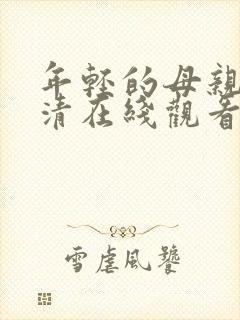 年轻的母親
清在綫觀看
雪虐風饕